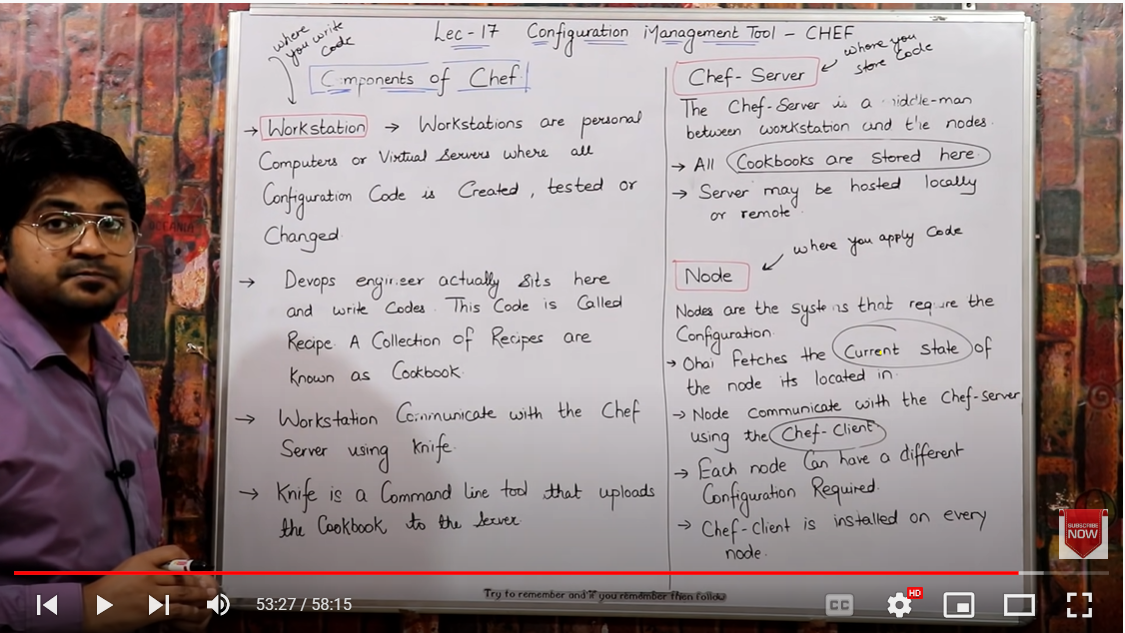 Lec - 17 Configuration Management Tool - CHEF
where
you write
Code
Components of Chef
→ Workstation → Workstations are personal
Computers or Virtual Servers where all
Configuration Code is Created, tested or
Changed.
→ Devops engineer actually sits here
and write Codes. This Code is Called
Recipe. A Collection of Recipes are
known as Cookbook.
→ Workstation Communicate with the Chef
Server using knife.
→ Knife is a Command line tool that uploads
the Cookbook to the server.
Chef-Server
where you
store Code
The Chef-Server is a middle-man
between workstation and the nodes.
→ All Cookbooks are Stored here
→ Server may be hosted locally
or remote.
where you apply Code
Node
Nodes are the systems that require the
Configuration.
→ Ohai fetches the Current State of
the node its located in.
→ Node communicate with the Chef-server
using the Chef-Client
→ Each node Can have a different
Configuration Required.
→ Chef-Client is installed on every
node.
OCEANIA
SUBSCRIBE
NOW
Try to remember and if you remember then follow
53:27 / 58:15
CC
HD